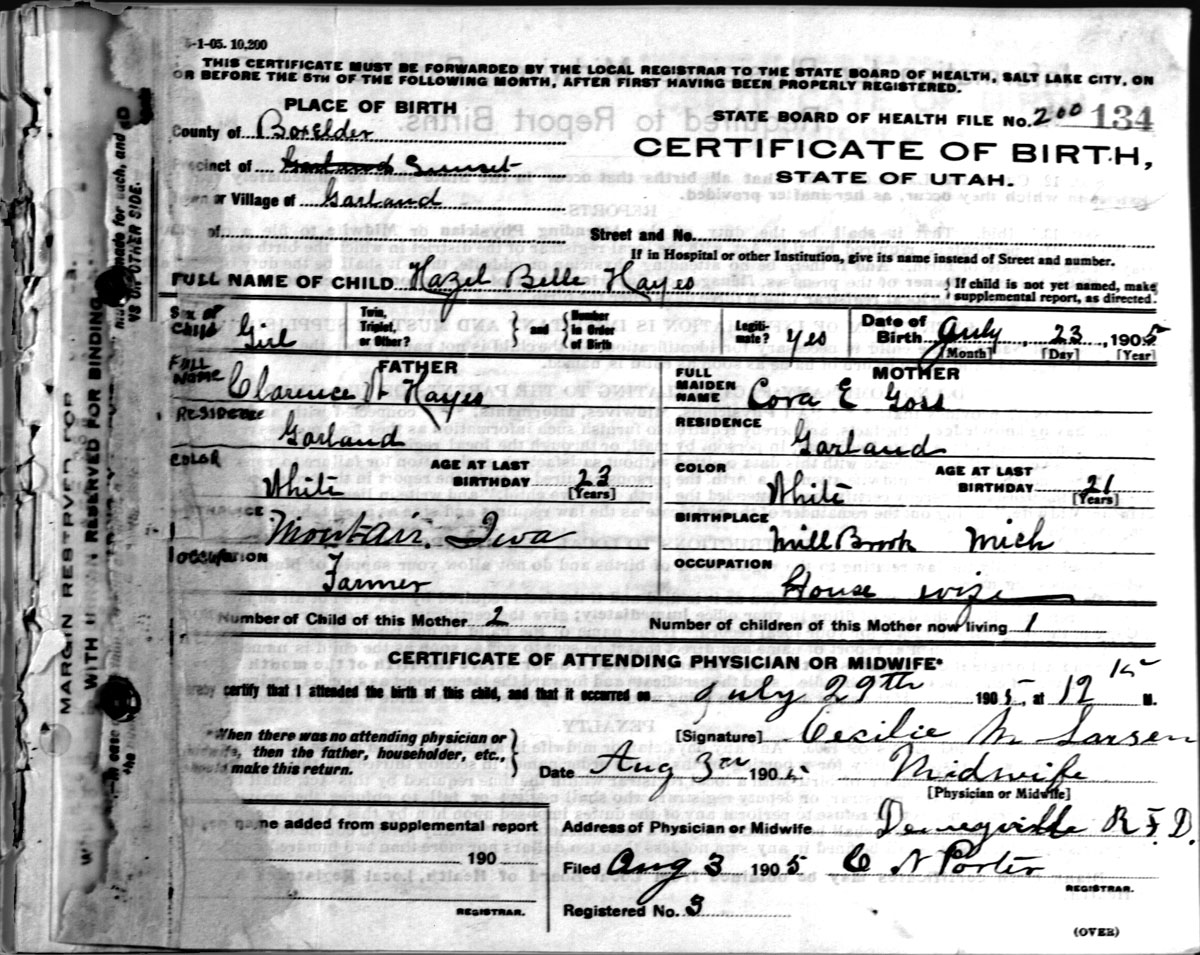 5-1-05. 10,200
THIS CERTIFICATE MUST BE FORWARDED BY THE LOCAL REGISTRAR TO THE STATE BOARD OF HEALTH, SALT LAKE CITY, ON
OR BEFORE THE 5TH OF THE FOLLOWING MONTH, AFTER FIRST HAVING BEEN PROPERLY REGISTERED.
PLACE OF BIRTH
County of BoxElder
Precinct of Garland Sunset
Town or Village of Garland
STATE BOARD OF HEALTH FILE No. 200 134
CERTIFICATE OF BIRTH,
STATE OF UTAH.
of Street and No.
If in Hospital or other Institution, give its name instead of Street and number.
FULL NAME OF CHILD Hazel Belle Hayes } If child is not yet named, make supplemental report, as directed.
Sex of Child Girl Twin, Triplet, or Other? } and { Number in Order of Birth Legiti-mate? Yes Date of Birth July, 23, 1905
[Month] [Day] [Year]
FATHER
FULL NAME Clarence W Hayes
RESIDENCE Garland
COLOR White AGE AT LAST BIRTHDAY 23 [Years]
Iowa
OCCUPATION Farmer
MOTHER
FULL MAIDEN NAME Cora E Goss
RESIDENCE Garland
COLOR White AGE AT LAST BIRTHDAY 21 [Years]
BIRTHPLACE Mill Brook Mich
OCCUPATION House wife
Number of Child of this Mother 2 Number of children of this Mother now living 1
CERTIFICATE OF ATTENDING PHYSICIAN OR MIDWIFE*
certify that I attended the birth of this child, and that it occurred on July 29th 1905, at 12 15 M.
*When there was no attending physician or
then the father, householder, etc.,
make this return.
[Signature] Cecilie M Larsen
Date Aug 3rd 1905 Midwife
[Physician or Midwife]
name added from supplemental report
190
REGISTRAR.
Address of Physician or Midwife Deweyville R.F.D.
Filed Aug 3 1905 C N Porter
REGISTRAR.
Registered No. 3
(OVER)
MARGIN RESERVED FOR
RESERVED FOR BINDING
made for each, and
ON OTHER SIDE.